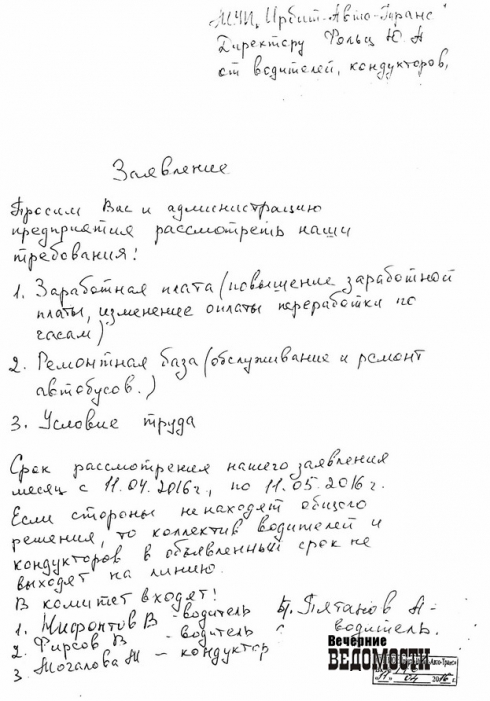 МУП "Ирбит-Авто-Транс"
Директору Фольц Ю.А
от водителей, кондукторов,
Заявление
Просим Вас и администрацию
предприятия рассмотреть наши
требования!
1. Заработная плата (повышение заработной
платы, изменение оплаты переработки по
часам)
2. Ремонтная база (обслуживание и ремонт
автобусов.)
3. Условие труда
Срок рассмотрения нашего заявления
месяц с 11.04.2016г., по 11.05.2016г.
Если стороны не находят общего
решения, то коллектив водителей и
кондукторов в объявленный срок не
выходят на линию.
В комитет входят!
1. В - водитель
2. Фирсов В - водитель
3. Могалова М - кондуктор
А -
водитель.
Вечерние
ВЕДОМОСТИ
11 04 2016 г.